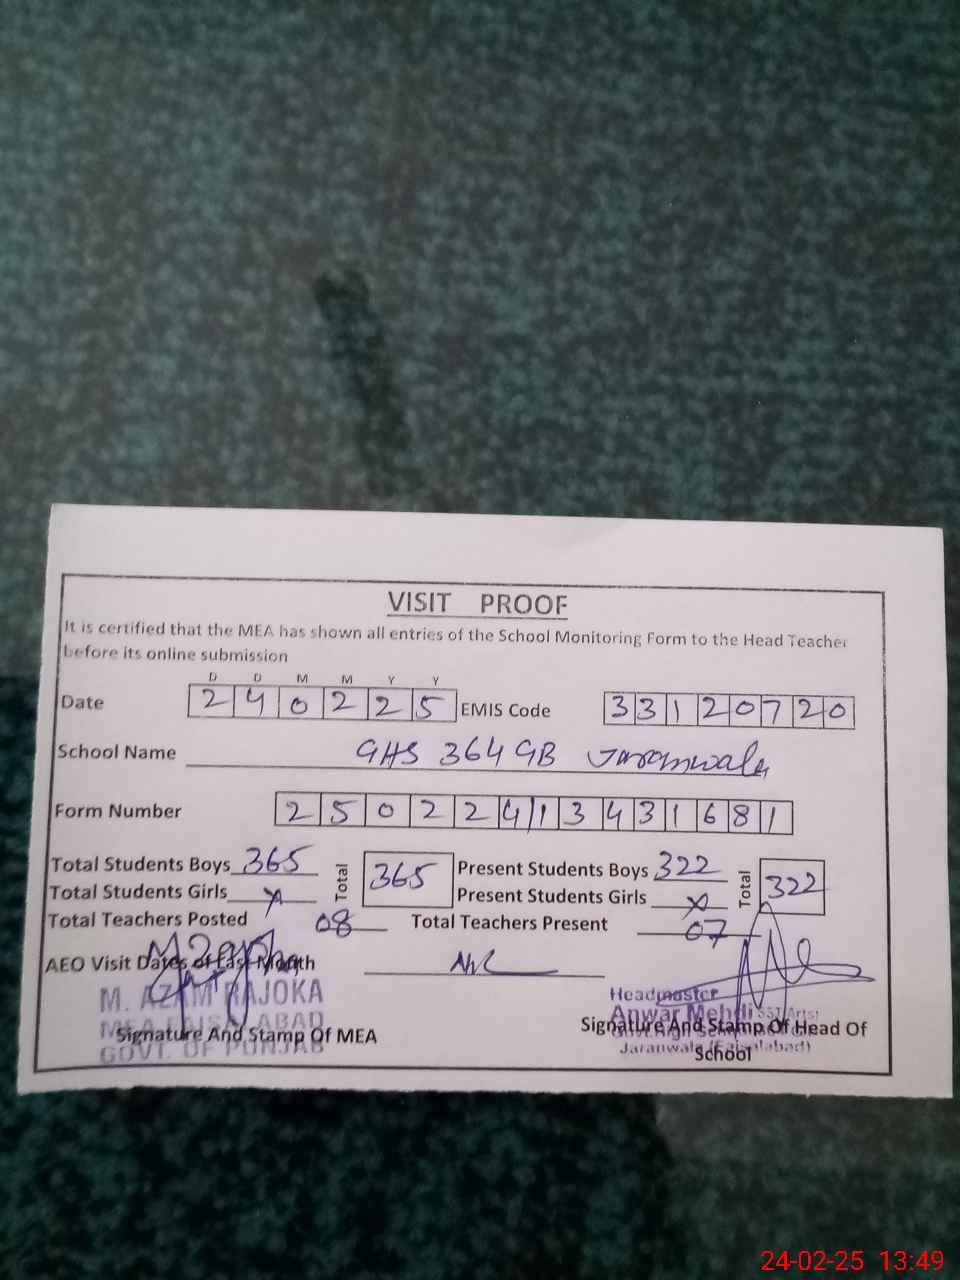 VISIT PROOF
It is certified that the MEA has shown all entries of the School Monitoring Form to the Head Teacher
before its online submission
D D M M Y Y
Date 240225 EMIS Code 33120720
School Name GHS 364 GB Jaranwala
Form Number 25022413431681
Total Students Boys 365 Total 365 Present Students Boys 322 Total 322
Total Students Girls x Present Students Girls x
Total Teachers Posted 08 Total Teachers Present 07
AEO Visit Dates of Last Month Nil
M. AZAM RAJOKA
MEA FAISALABAD
GOVT. OF PUNJAB
Signature And Stamp Of MEA
Headmaster
Anwar Mehdi SST(Arts)
Jaranwala (Faisalabad)
Signature And Stamp Of Head Of
School
24-02-25 13:49